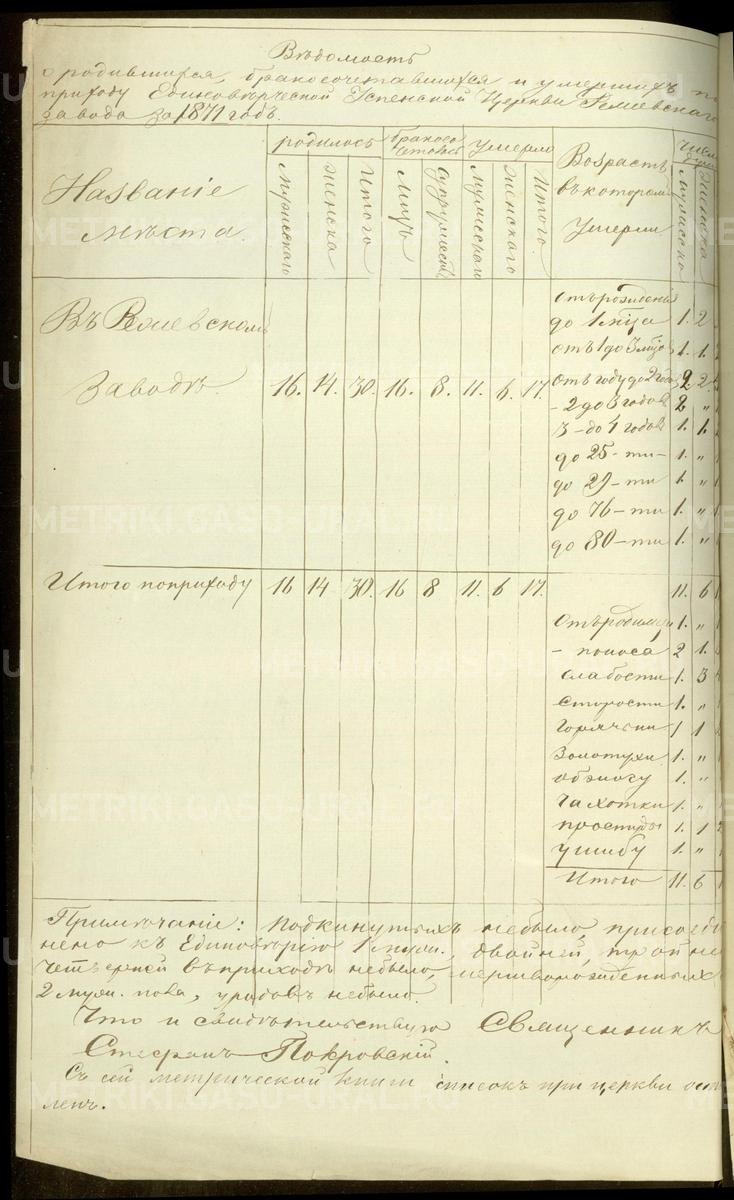 Вѣдомость
о родившихся, бракосочетавшихся и умершихъ по
приходу Единовѣрческой Успенской Церкви
завода за 1871 годъ.
Названіе
мѣста.
родилось
мужескаго
женска
Итого
бракосо
четовш
Лицъ
супружеств
Умерло
мужескаго
женскаго
Итого.
Возрастъ
въ котором
Умерли
мужеско
женска
Въ
Заводѣ. 16. 14. 30. 16. 8. 11. 6. 17.
отъ рожденія
до 1 мѣца 1. 2
отъ 1 до 3 мѣцов 1. 1.
отъ году до 2 годов 2 2.
- 2 до 3 годов 2 "
3 - до 4 годов 1. 1.
до 25 - ти - 1. "
до 29 - ти 1. "
до 76 - ти 1. "
до 80 - ти 1. "
Итого по приходу 16 14 30. 16 8 11. 6 17. 11. 6
отъ родимца 1. "
- поноса 2 1.
слабости 1. 3
старости 1. "
горячки 1 1
Золотухи 1. "
1. "
чахотки 1. "
простуды 1. 1
ушибу 1. "
Итого 11. 6
Примѣчаніе: подкинутыхъ небыло, присоеди
нено къ Единовѣрію 1 муж., двойней, тройне
четверней въ приходѣ небыло, мертворожденныхъ
2 муж. пола, уродовъ небыло.
Что и свидѣтельствую Священникъ
Стефанъ Покровскій.
Съ сей метрической книги списокъ при церкви остав
ленъ.
METRIKI.GASO-URAL.RU